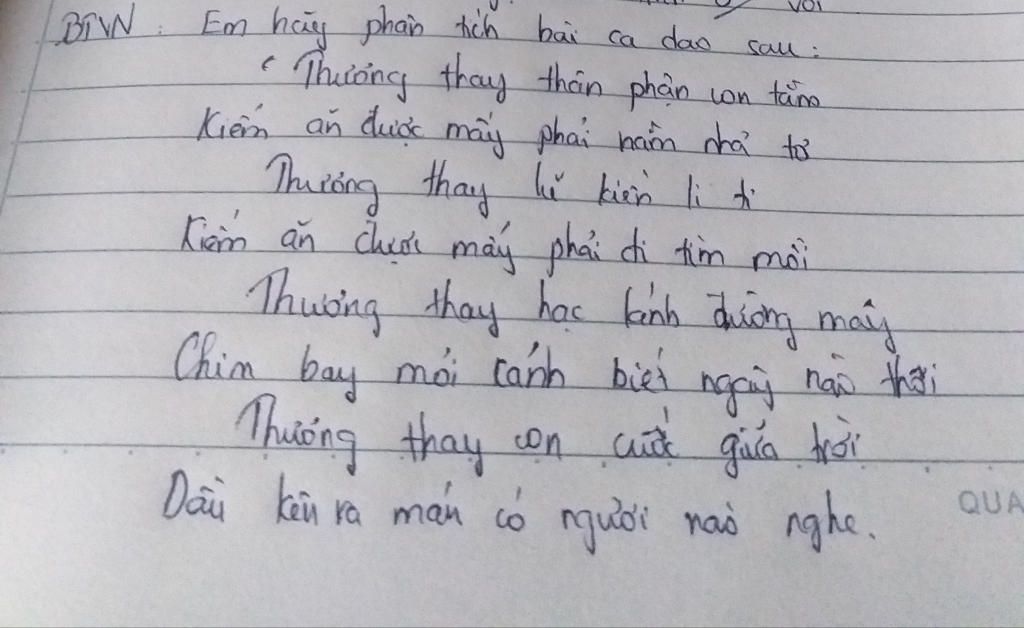 với
BTVN : Em hãy phân tích bài ca dao sau :
" Thương thay thân phận con tằm
Kiếm ăn được mấy phải nằm nhả tơ
Thương thay lũ kiến li ti
Kiếm ăn được mấy phải đi tìm mồi
Thương thay hạc lánh đường mây
Chim bay mỏi cánh biết ngày nào thôi
Thương thay con cuốc giữa trời
Dầu kêu ra máu có người nào nghe.
QUA